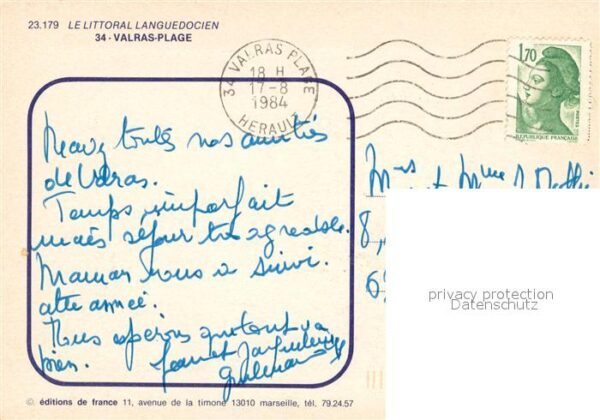 23.179 LE LITTORAL LANGUEDOCIEN
34 - VALRAS-PLAGE
34 VALRAS PLAGE
18 H
17-8
1984
HERAULT
1,70
REPUBLIQUE FRANÇAISE
Recevez toutes nos amitiés
de Valras.
Temps imparfait
mais séjour très agréable.
Maman nous a suivi
cette année.
Nous espérons que tout va
bien. Jean et Jacqueline
Mrs et Mme
8,
69
privacy protection
Datenschutz
© éditions de france 11, avenue de la timone 13010 marseille, tél. 79.24.57